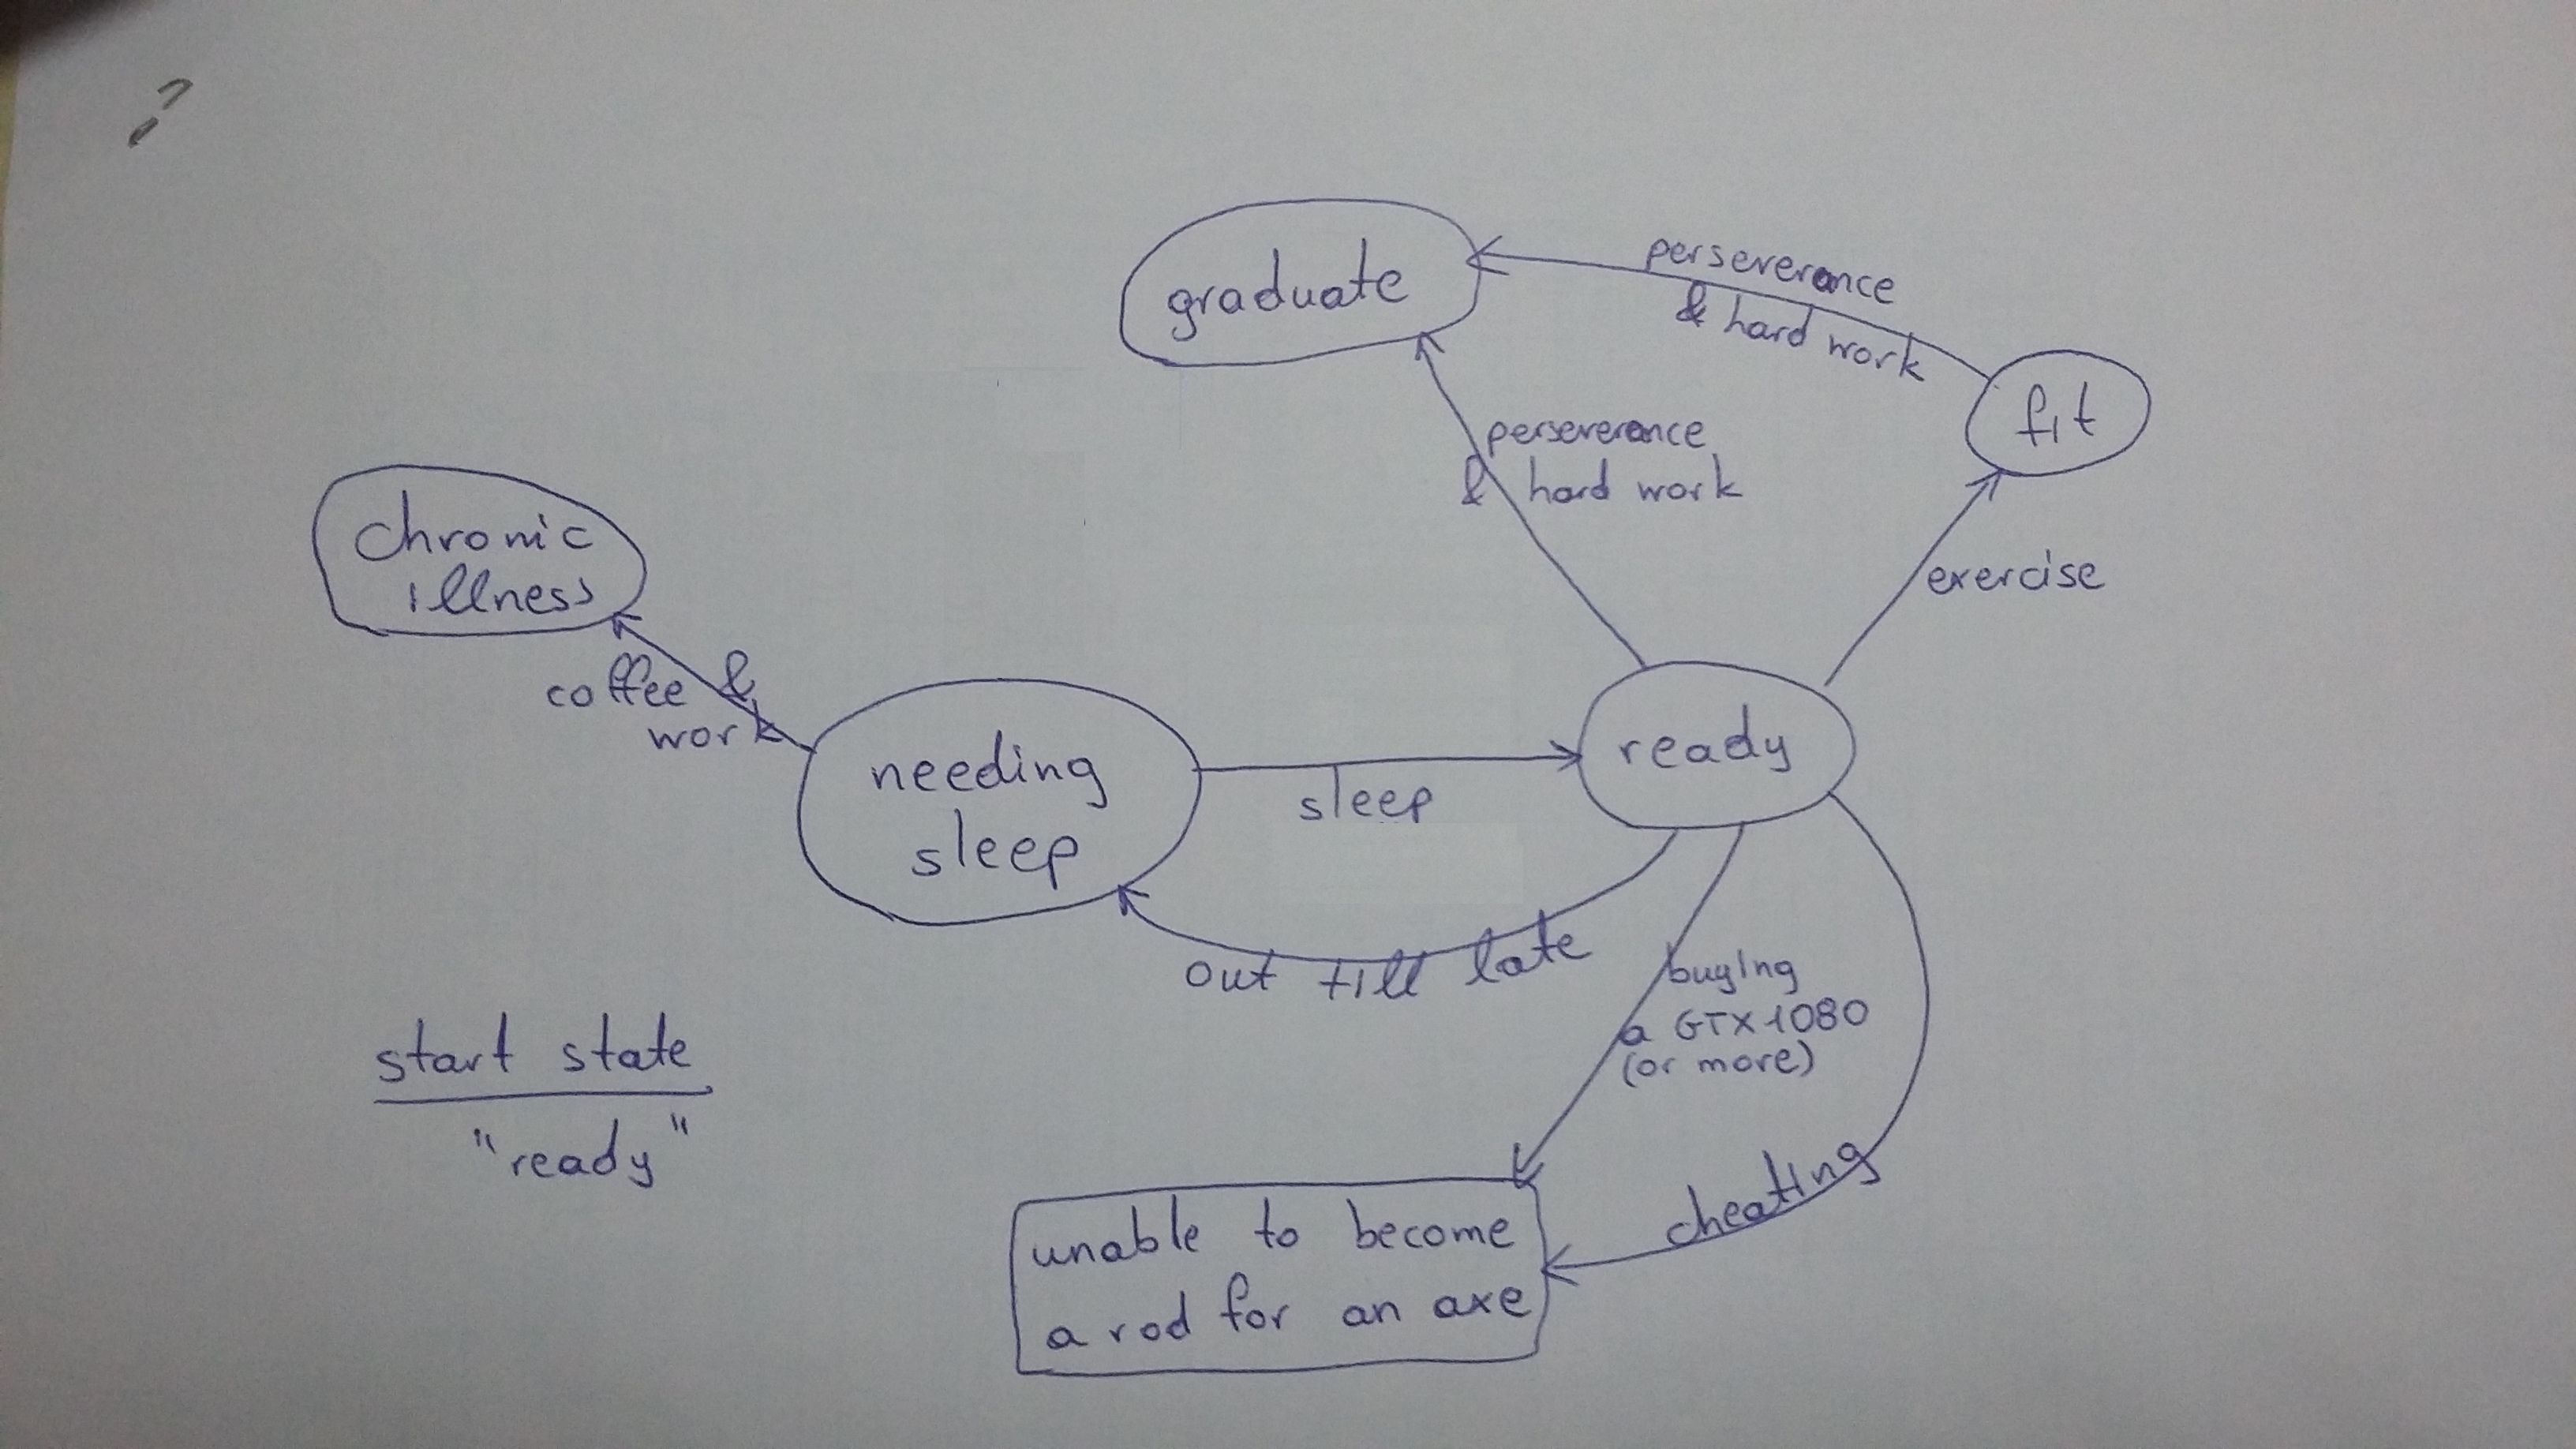 ?
graduate
perseverance
& hard work
fit
perseverance
& hard work
chronic
illness
exercise
coffee &
work
needing
sleep
sleep
ready
out till late
buying
a GTX1080
(or more)
start state
"ready"
cheating
unable to become
a rod for an axe